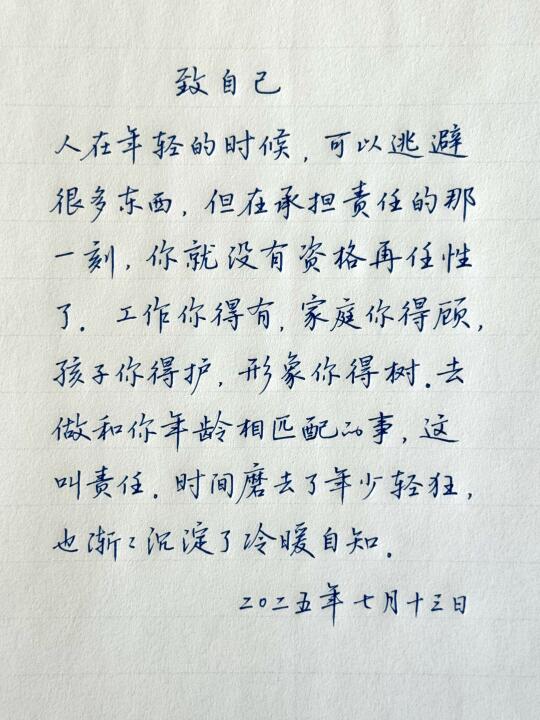 致自己
人在年轻的时候,可以逃避
很多东西,但在承担责任的那
一刻,你就没有资格再任性
了.工作你得有,家庭你得顾,
孩子你得护,形象你得树.去
做和你年龄相匹配的事,这
叫责任.时间磨去了年少轻狂,
也渐々沉淀了冷暖自知.
二〇二五年七月十三日